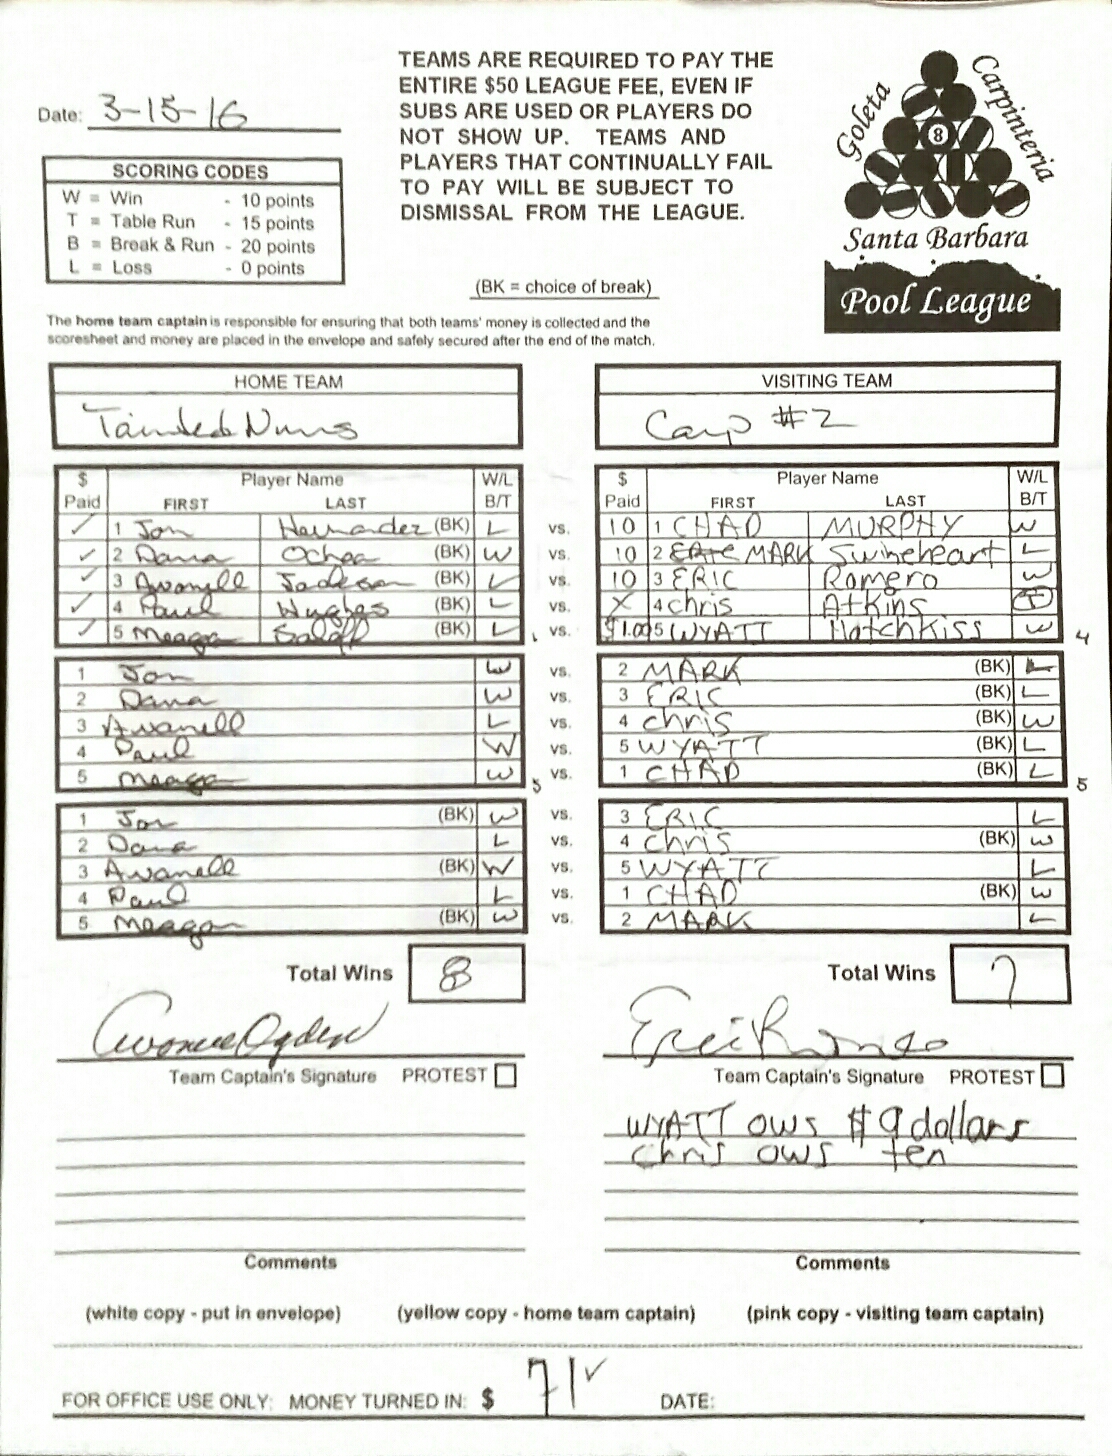 Date: 3-15-16
TEAMS ARE REQUIRED TO PAY THE
ENTIRE $50 LEAGUE FEE, EVEN IF
SUBS ARE USED OR PLAYERS DO
NOT SHOW UP. TEAMS AND
PLAYERS THAT CONTINUALLY FAIL
TO PAY WILL BE SUBJECT TO
DISMISSAL FROM THE LEAGUE.
Goleta
Carpinteria
8
Santa Barbara
Pool League
SCORING CODES
W = Win - 10 points
T = Table Run - 15 points
B = Break & Run - 20 points
L = Loss - 0 points
(BK = choice of break)
The home team captain is responsible for ensuring that both teams' money is collected and the
scoresheet and money are placed in the envelope and safely secured after the end of the match.
HOME TEAM VISITING TEAM
Tainted Nuns Carp #2
$ Paid Player Name FIRST LAST W/L B/T $ Paid Player Name FIRST LAST W/L B/T
✓ 1 Jon Hernandez (BK) L vs. 10 1 CHAD MURPHY W
✓ 2 Dana Ochoa (BK) W vs. 10 2 MARK Swineheart L
✓ 3 Avanell Jackson (BK) L vs. 10 3 ERIC Romero W
✓ 4 Paul Hughes (BK) L vs. X 4 chris Atkins T
✓ 5 Meagan (BK) L 1 vs. $1.00 5 WYATT HotchKiss W 4
1 Jon W vs. 2 MARK (BK) L
2 Dana W vs. 3 ERIC (BK) L
3 Avanell L vs. 4 chris (BK) W
4 Paul W vs. 5 WYATT (BK) L
5 Meagan W 5 vs. 1 CHAD (BK) L 5
1 Jon (BK) W vs. 3 ERIC L
2 Dana L vs. 4 chris (BK) W
3 Avanell (BK) W vs. 5 WYATT L
4 Paul L vs. 1 CHAD (BK) W
5 Meagan (BK) W vs. 2 MARK L
Total Wins 8 Total Wins 7
Ogden Eric Romero
Team Captain's Signature PROTEST Team Captain's Signature PROTEST
WYATT ows $9 dollars
chris ows ten
Comments Comments
(white copy - put in envelope) (yellow copy - home team captain) (pink copy - visiting team captain)
FOR OFFICE USE ONLY: MONEY TURNED IN: $ 71 ✓ DATE: